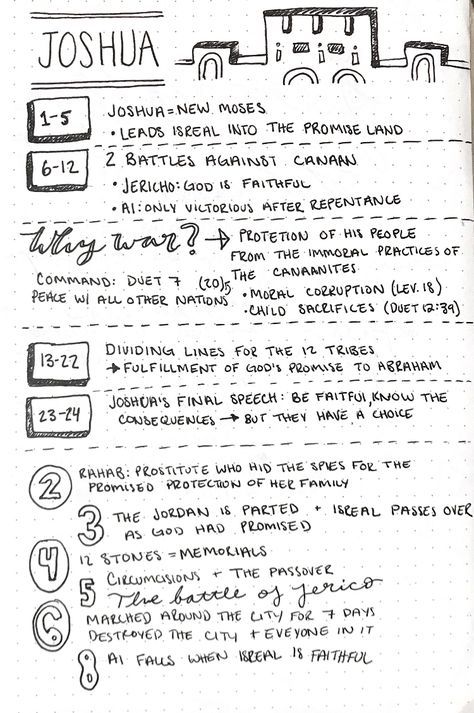 JOSHUA
1-5
JOSHUA = NEW MOSES
• LEADS ISREAL INTO THE PROMISE LAND
6-12
2 BATTLES AGAINST CANAAN
• JERICHO: GOD IS FAITHFUL
• AI: ONLY VICTORIOUS AFTER REPENTANCE
Why war? → PROTETION OF HIS PEOPLE
FROM THE IMMORAL PRACTICES OF
THE CANAANITES
• MORAL CORRUPTION (LEV. 18)
• CHILD SACRIFICES (DUET 12:39)
COMMAND: DUET 7 (20)5
PEACE W/ ALL OTHER NATIONS
13-22
DIVIDING LINES FOR THE 12 TRIBES
→ FULFILLMENT OF GOD'S PROMISE TO ABRAHAM
23-24
JOSHUA'S FINAL SPEECH: BE FAITFUL, KNOW THE
CONSEQUENCES → BUT THEY HAVE A CHOICE
2 RAHAB: PROSTITUTE WHO HID THE SPIES FOR THE
PROMISED PROTECTION OF HER FAMILY
3 THE JORDAN IS PARTED + ISREAL PASSES OVER
AS GOD HAD PROMISED
4 12 STONES = MEMORIALS
5 CIRCUMCISIONS + THE PASSOVER
The battle of Jerico
6 MARCHED AROUND THE CITY FOR 7 DAYS
DESTROYED THE CITY + EVEYONE IN IT
8 AI FALLS WHEN ISREAL IS FAITHFUL